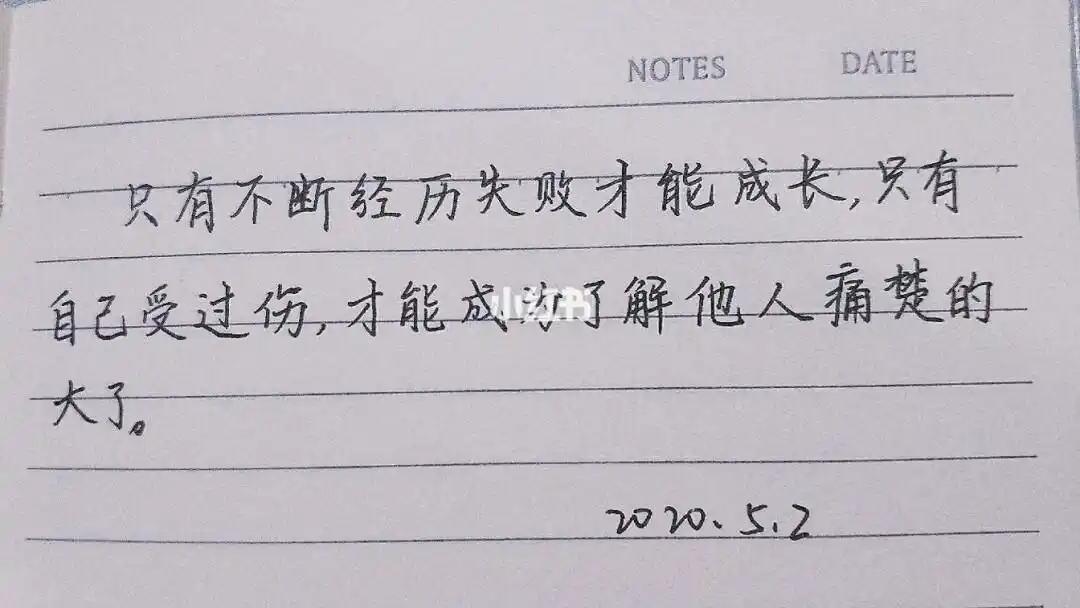 NOTES DATE
只有不断经历失败才能成长,只有
自己受过伤,才能成为了解他人痛楚的
大了。
2020.5.2
小红书